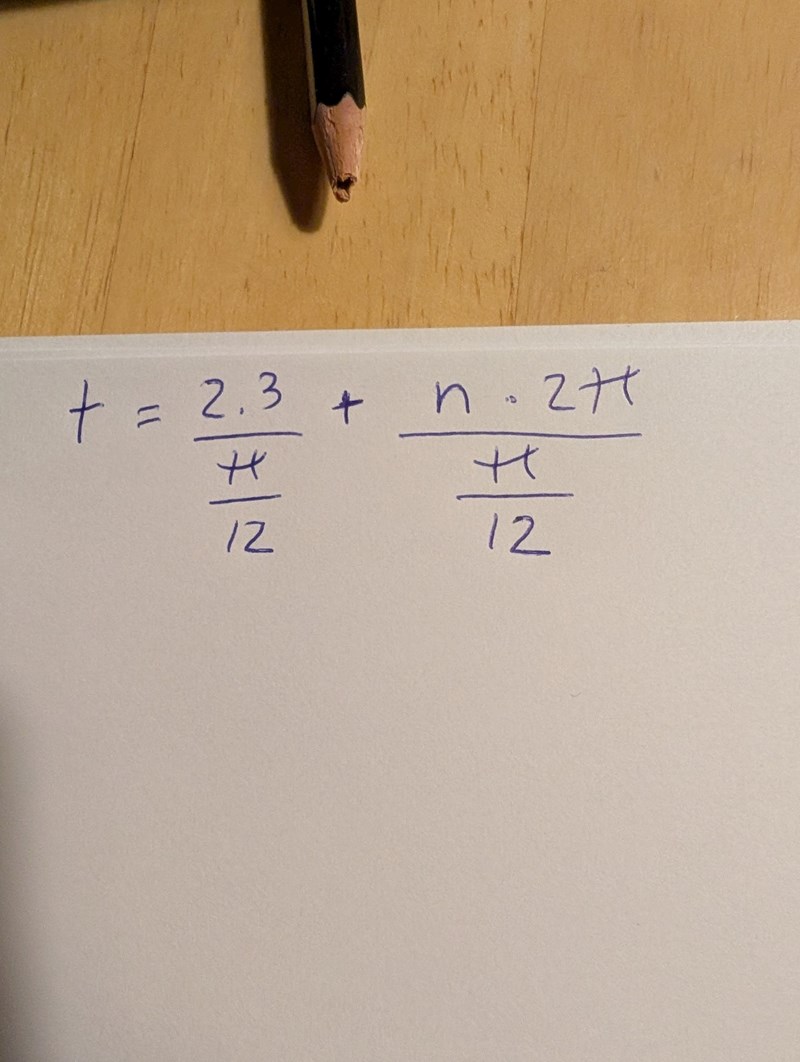 t = 2.3/(π/12) + n · 2π/(π/12)